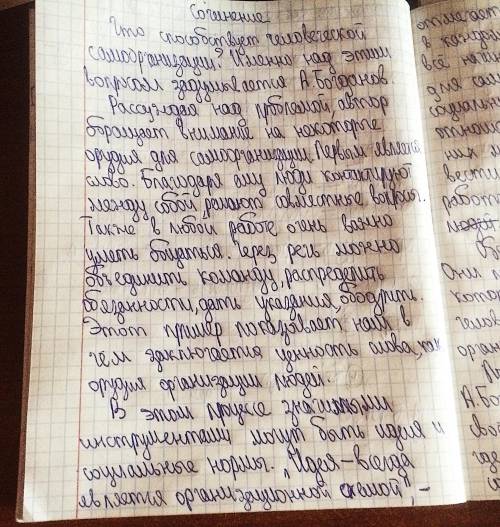 Сочинение
Что способствует человеческой
самоорганизации? Именно над этим
вопросом задумывается А.Богданов.
Рассуждая над проблемой, автор
обращает внимание на некоторые
орудия для самоорганизации. Первым является
слово. Благодаря ему люди контактируют
между собой, решают совместные вопросы.
Также в любой работе очень важно
уметь общаться. Через речь можно
объединить команду, распределить
обязанности, дать указания, ободрить.
Этот пример показывает нам в
чем заключается ценность слова, как
орудия организации людей.
В этом процессе значимыми
инструментами могут быть идея и
социальные нормы. „Идея – всегда
является организационной схемой", –
отмечает
в каждо
всё на
для са
социаль
отнош
них м
вести
работ
Они
кото
челов
орган
А.Бог
сво
где